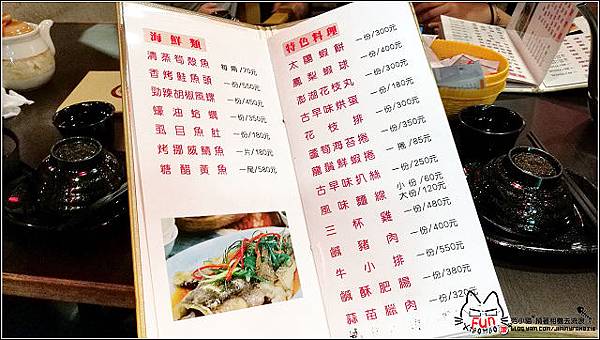 海鮮類
清蒸筍殼魚 每兩/70元
香烤鮭魚頭 一份/550元
勁辣胡椒鳳螺 一份/450元
蠔油蛤蠣 一份/350元
虱目魚肚 一份/180元
烤挪威鯖魚 一片/180元
糖醋黃魚 一尾/580元
特色料理
太陽蝦餅 一份/300元
鳳梨蝦球 一份/400元
澎湖花枝丸 一份/300元
古早味烘蛋 一份/180元
花枝排 一份/300元
蘆筍海苔捲 一份/350元
龍鬚鮮蝦捲 一捲/85元
古早味扒絲 一份/250元
風味麵線 小份/60元 大份/120元
三杯雞 一份/480元
鹹豬肉 一份/400元
牛小排 一份/550元
鹹酥肥腸 一份/380元
蒜苗臘肉 一份/320元
FUN